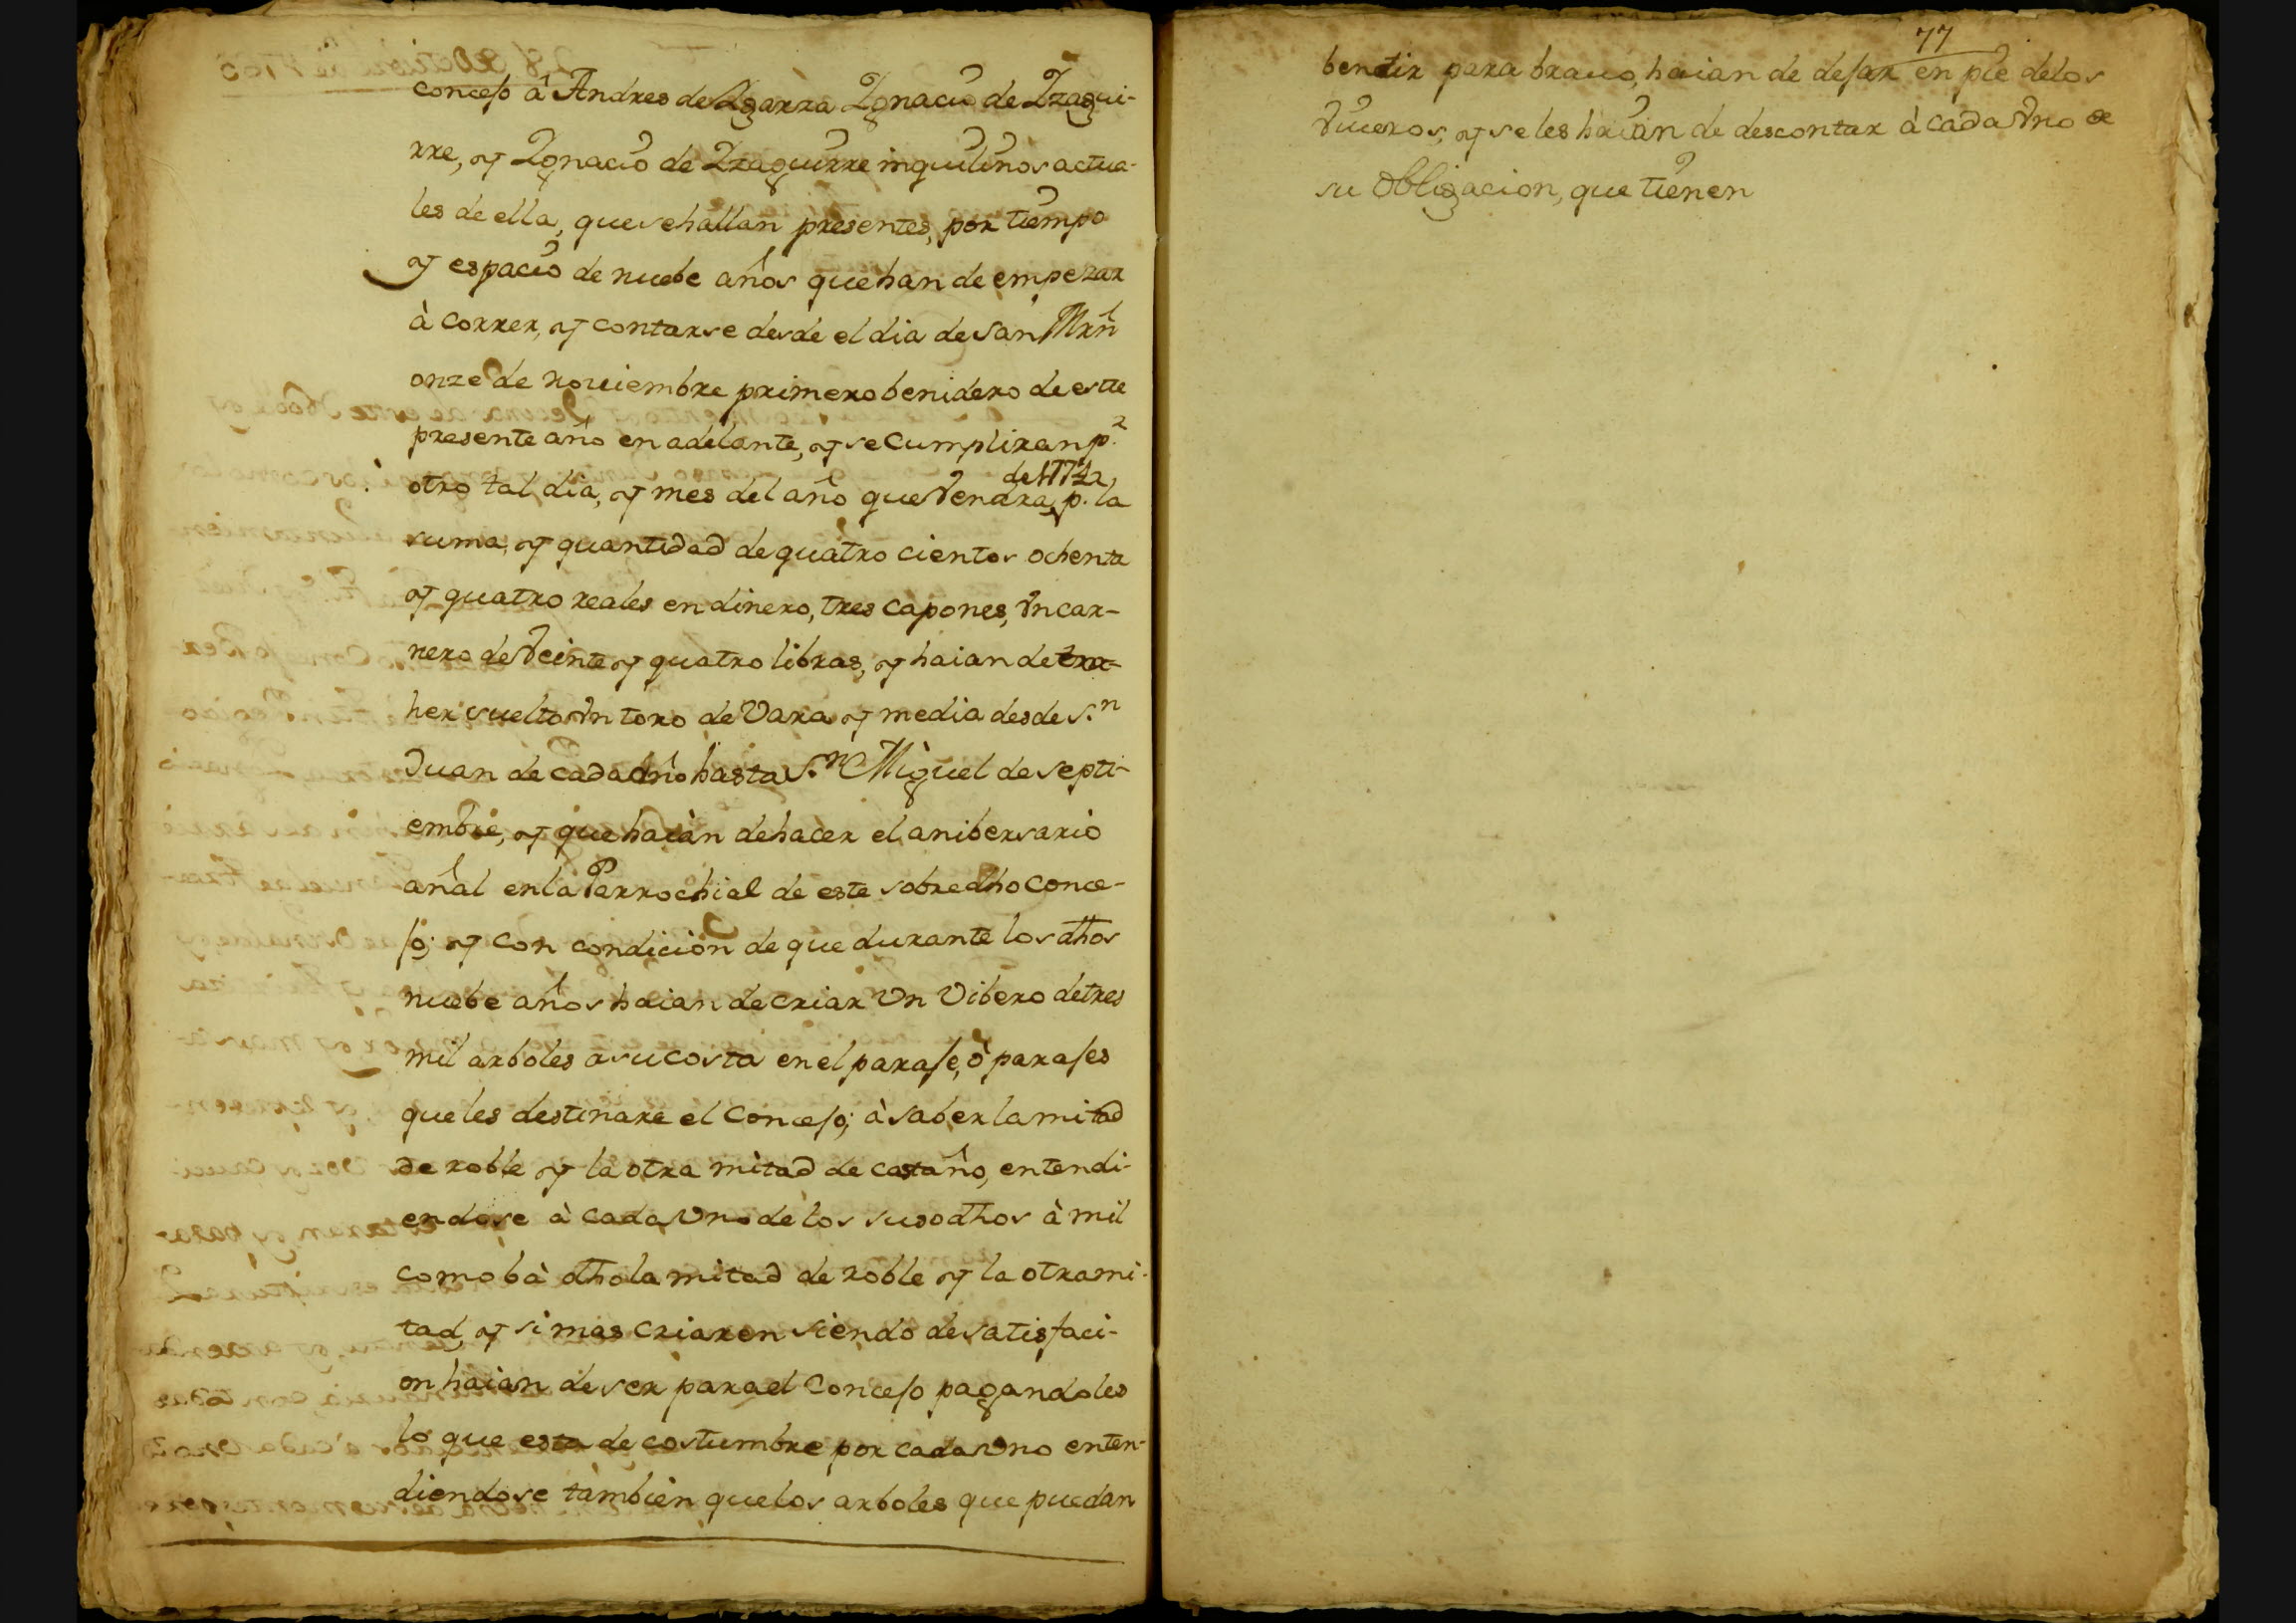 concejo â Andres de Lizarra Ygnacio de Yzagui-
rre, y Ygnacio de Yzaguirre inquilinos actua-
les de ella, que se hallan presentes, por tiempo
y espacio de nuebe años que han de empezar
à correr, y contarse desde el dia de san Mrñ
onze de noviembre primero benidero de este
presente año en adelante, y se Cumpliran p.ª
otro tal dia, y mes del año que Vendra de 1774, p. la
suma, y quantidad de quatro cientos ochenta
y quatro reales en dinero, tres capones, Vn car-
nero de Veinte y quatro libras, y haian de tra-
her suelto Vn toro de Vara y media desde S.n
Juan de cada año hasta S.n Miguel de septi-
embre, y que haiàn de hacer el anibersario
añal en la Parrochial de este sobredho conce-
jo; y con condicion de que durante los dhos
nuebe años haian de criar Vn Vibero de tres
mil arboles a su costa en el paraje, ò parajes
que les destinare el Concejo; à saber la mitad
de roble y la otra mitad de castaño, entendi-
endose à cada Vno de los susodhos à mil
como bà dho la mitad de roble y la otra mi-
tad, y si mas criaren siendo de satisfaci-
on haian de ser para el Concejo pagandoles
lo que esta de costumbre por cada Vno enten-
diendose tambien que los arboles que puedan
77
benir para brauo, haian de dejar en pie de los
Viueros, y se les haian de descontar à cada Vno de
su Obligacion, que tienen